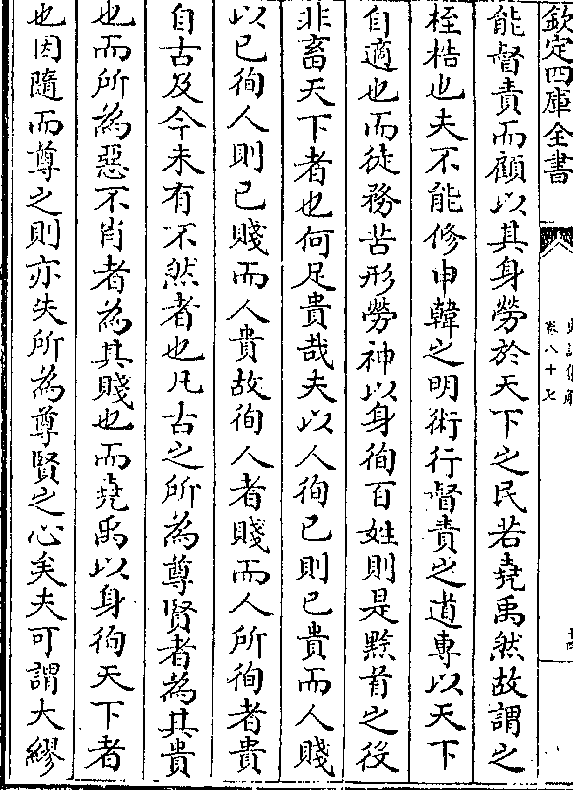 欽定四庫全書
卷八十七
能督責而顧以其身勞於天下之民若堯禹然故謂之
桎梏也夫不能修申韓之明術行督責之道專以天下
自適也而徒務苦形勞神以身徇百姓則是黔首之役
非畜天下者也何足貴哉夫以人徇已則已貴而人賤
以已徇人則已賤而人貴故徇人者賤而人所徇者貴
自古及今未有不然者也凡古之所為尊賢者為其貴
也而所為惡不肖者為其賤也而堯禹以身徇天下者
也因隨而尊之則亦失所為尊賢之心矣夫可謂大繆